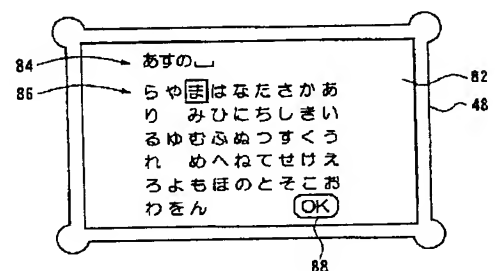 84
あすの␣
82
86
らやまはなたさかあ
48
り みひにちしきい
るゆむふぬつすくう
れ めへねてせけえ
ろよもほのとそこお
わをん OK
88